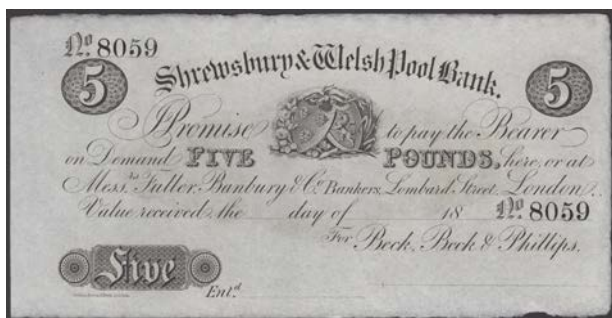 No 8059
5 Shrewsbury & Welsh Pool Bank. 5
I Promise to pay the Bearer
on Demand FIVE POUNDS, here, or at
Messrs. Fuller, Banbury & Co. Bankers, Lombard Street, London.
Value received the day of 18 No 8059
For Beck, Beck & Phillips.
Five
Entd.